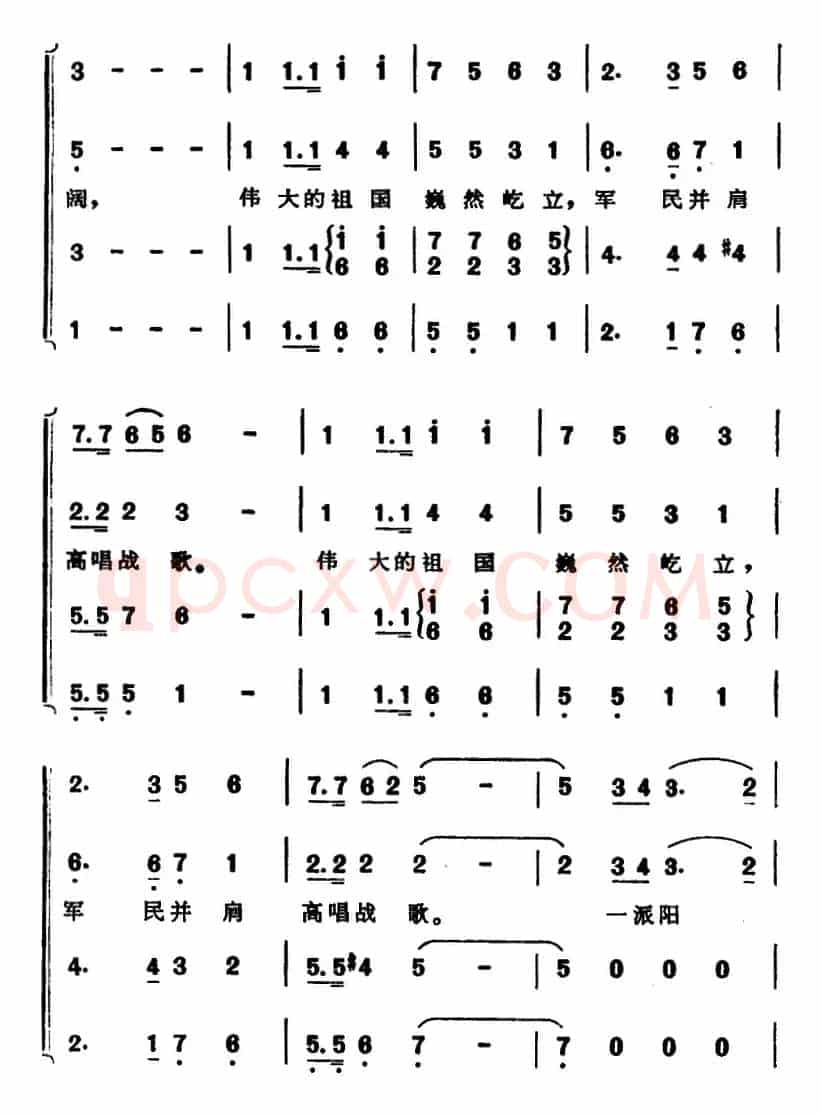 3 - - - | 1 1.1 i i | 7 5 6 3 | 2. 3 5 6 |
5 - - - | 1 1.1 4 4 | 5 5 3 1 | 6. 6 7 1 |
阔, 伟 大的祖 国 巍 然屹 立, 军 民并 肩
3 - - - | 1 1.1 { i i | 7 7 6 5 } | 4. 4 4 #4 |
6 6 | 2 2 3 3
1 - - - | 1 1.1 6 6 | 5 5 1 1 | 2. 1 7 6 |
7.7 6 5 6 - | 1 1.1 i i | 7 5 6 3 |
2.2 2 3 - | 1 1.1 4 4 | 5 5 3 1 |
高唱战 歌。 伟 大的祖 国 巍 然屹 立,
qpcxw.COM
5.5 7 6 - | 1 1.1 { i i | 7 7 6 5 } |
6 6 | 2 2 3 3
5.5 5 1 - | 1 1.1 6 6 | 5 5 1 1 |
2. 3 5 6 | 7.7 6 2 5 - | 5 3 4 3. 2 |
6. 6 7 1 | 2.2 2 2 2 - | 2 3 4 3. 2 |
军 民并 肩 高唱战 歌。 一派阳
4. 4 3 2 | 5.5 #4 5 - | 5 0 0 0 |
2. 1 7 6 | 5.5 6 7 - | 7 0 0 0 |